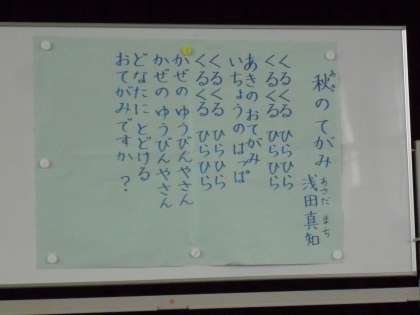 秋のてがみ
あき
浅田真知
あさだ まち
くるくる ひらひら
くるくる ひらひら
あきのおてがみ
いちょうのはっぱ
くるくる ひらひら
くるくる ひらひら
かぜの ゆうびんやさん
かぜの ゆうびんやさん
どなたに とどける
おてがみですか ?